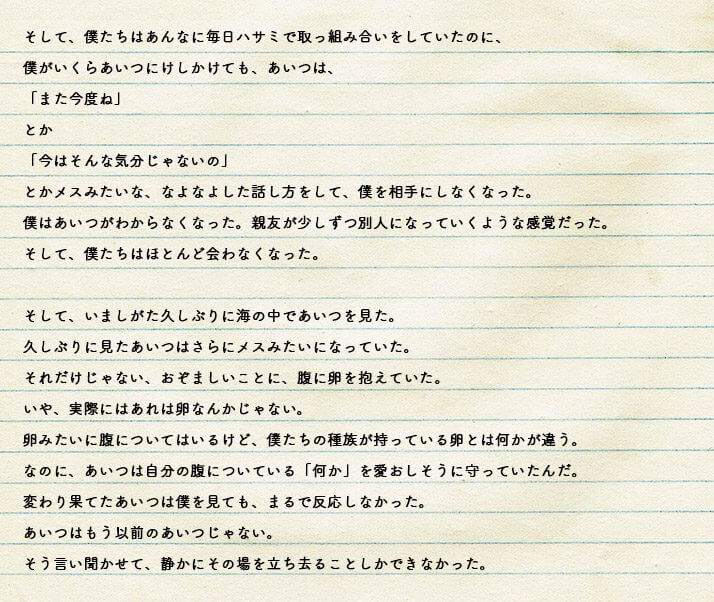 そして、僕たちはあんなに毎日ハサミで取っ組み合いをしていたのに、
僕がいくらあいつにけしかけても、あいつは、
「また今度ね」
とか
「今はそんな気分じゃないの」
とかメスみたいな、なよなよした話し方をして、僕を相手にしなくなった。
僕はあいつがわからなくなった。親友が少しずつ別人になっていくような感覚だった。
そして、僕たちはほとんど会わなくなった。
そして、いましがた久しぶりに海の中であいつを見た。
久しぶりに見たあいつはさらにメスみたいになっていた。
それだけじゃない、おぞましいことに、腹に卵を抱えていた。
いや、実際にはあれは卵なんかじゃない。
卵みたいに腹についてはいるけど、僕たちの種族が持っている卵とは何かが違う。
なのに、あいつは自分の腹についている「何か」を愛おしそうに守っていたんだ。
変わり果てたあいつは僕を見ても、まるで反応しなかった。
あいつはもう以前のあいつじゃない。
そう言い聞かせて、静かにその場を立ち去ることしかできなかった。